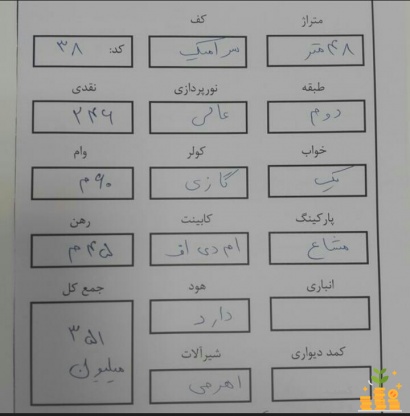 متراژ کف
۴۸ متر سرامیک کد: ۳۸
طبقه نورپردازی نقدی
دوم عالی ۲۴۶
خواب کولر وام
یک گازی ۶۰ م
پارکینگ کابینت رهن
مشاع ام دی اف ۴۵ م
انباری هود جمع کل
دارد ۳۵۱
میلیون
کمد دیواری شیرآلات
اهرمی